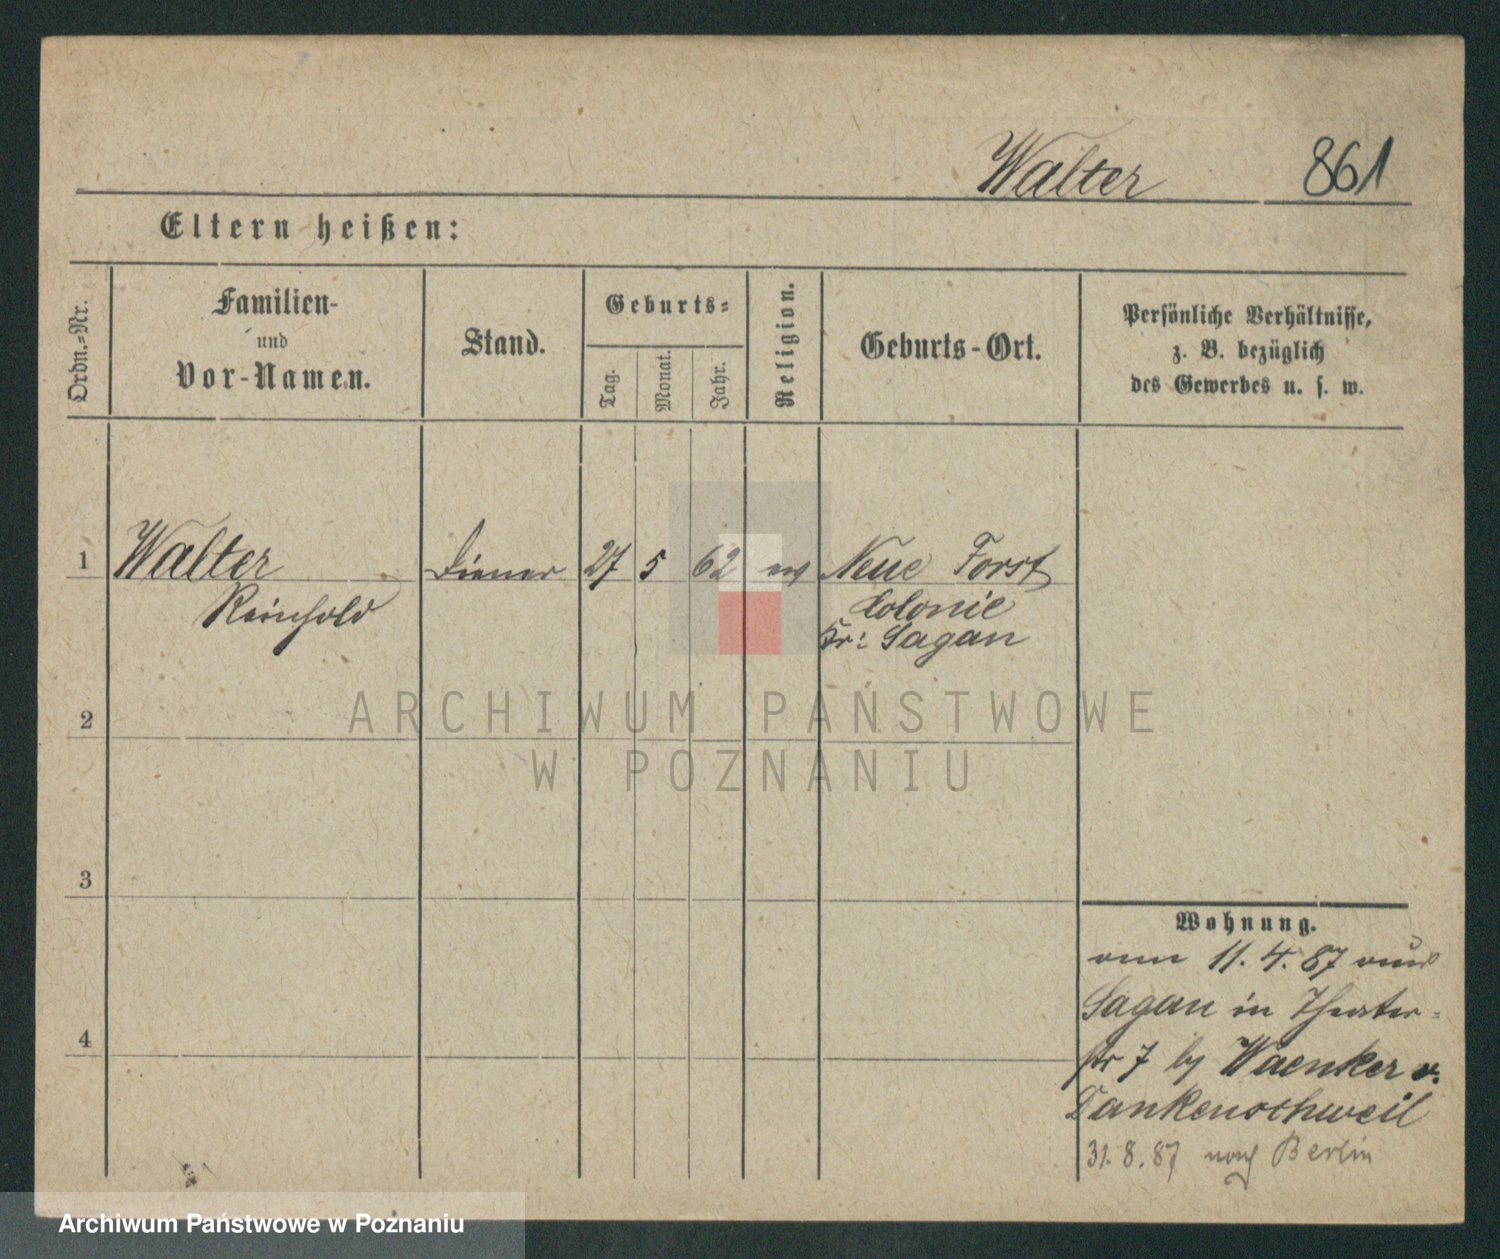 Walter 861
Eltern heißen:
Ordn.-Nr.
Familien-
und
Vor-Namen.
Stand.
Geburts-
Tag.
Monat.
Jahr.
Religion.
Geburts-Ort.
Persönliche Verhältnisse,
z. B. bezüglich
des Gewerbes u. s. w.
1 Walter Diener 27 5 62 ev Neue Forst
Reinhold Colonie
Kr: Sagan
2
3
4
Wohnung.
vom 11. 4. 87 aus
Sagan in Theater-
str 7 by Waenker v.
Dankenschweil
31. 8. 87 nach Berlin
ARCHIWUM PAŃSTWOWE
W POZNANIU
Archiwum Państwowe w Poznaniu